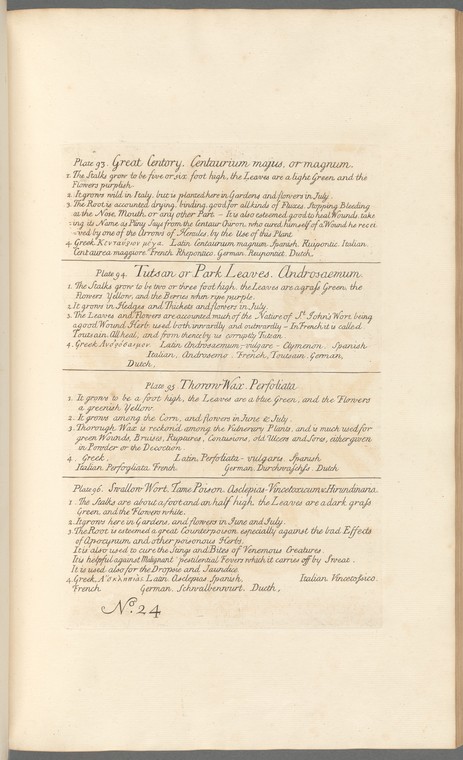 Plate 93. Great Centory. Centaurium majus, or magnum.
1. The Stalks grow to be five or six foot high, the Leaves are a light Green and the
Flowers purplish.
2. It grows wild in Italy, but is planted here in Gardens and flowers in July.
3. The Root is accounted drying, binding, good for all kinds of Fluxes, Stopping Bleeding
at the Nose, Mouth, or any other Part - It is also esteemed good to heal Wounds, tak=
=ing its Name as Pliny Says from the Centaur Chiron, who cured himself of a Wound he recei
=ved by one of the Arrows of Hercules, by the Use of this Plant.
4. Greek Κενταύριον μέγα. Latin Centaurium magnum. Spanish, Ruipontic. Italian,
Centaurea maggiore. French, Rhepontico. German, Reupontict. Dutch,
Plate 94. Tutsan or Park Leaves. Androsaemum
1. The Stalks grow to be two or three foot high, the Leaves are a grass Green, the
Flowers Yellow, and the Berries when ripe purple.
2. It grows in Hedges and Thickets and flowers in July.
3. The Leaves and Flowers are accounted much of the Nature of St. John's Wort being
a good Wound Herb, used both inwardly and outwardly - In French it is called
Toutsain, All heal, and from thence by us corruptly Tutsan
4. Greek Ανδρόσαιμον. Latin Androsaemum, vulgare - Clymenon. Spanish
Italian, Androsemo. French, Toutsain. German,
Dutch,
Plate 95 Thorow Wax. Perfoliata
1. It grows to be a foot high, the Leaves are a blue Green, and the Flowers
a greenish Yellow.
2. It grows among the Corn, and flowers in June & July.
3. Thorough Wax is reckon'd among the Vulnerary Plants, and is much used for
green Wounds, Bruises, Ruptures, Contusions, old Ulcers and Sores, either given
in Powder or the Decoction.
4. Greek, Latin, Perfoliata - vulgaris. Spanish,
Italian, Perfogliata. French, German, Durchwaschss. Dutch
Plate 96. Swallow Wort, Tame Poison. Asclepias - Vincetoxicum & Hirundinaria.
1. The Stalks are about a foot and an half high, the Leaves are a dark grass
Green, and the Flowers white.
2. It grows here in Gardens, and flowers in June and July.
3. The Root is esteemed a great Counterpoison, especially against the bad Effects
of Apocynum and other poisonous Herbs.
It is also used to cure the Stings and Bites of Venemous Creatures.
It is helpful against Malignant pestilential Fevers which it carries off by Sweat.
It is used also for the Dropsie and Jaundice.
4. Greek, Ασκληπιας. Latin, Asclepias. Spanish, Italian Vincetossico.
French German, Schwalbenwurt. Dutch,
No. 24